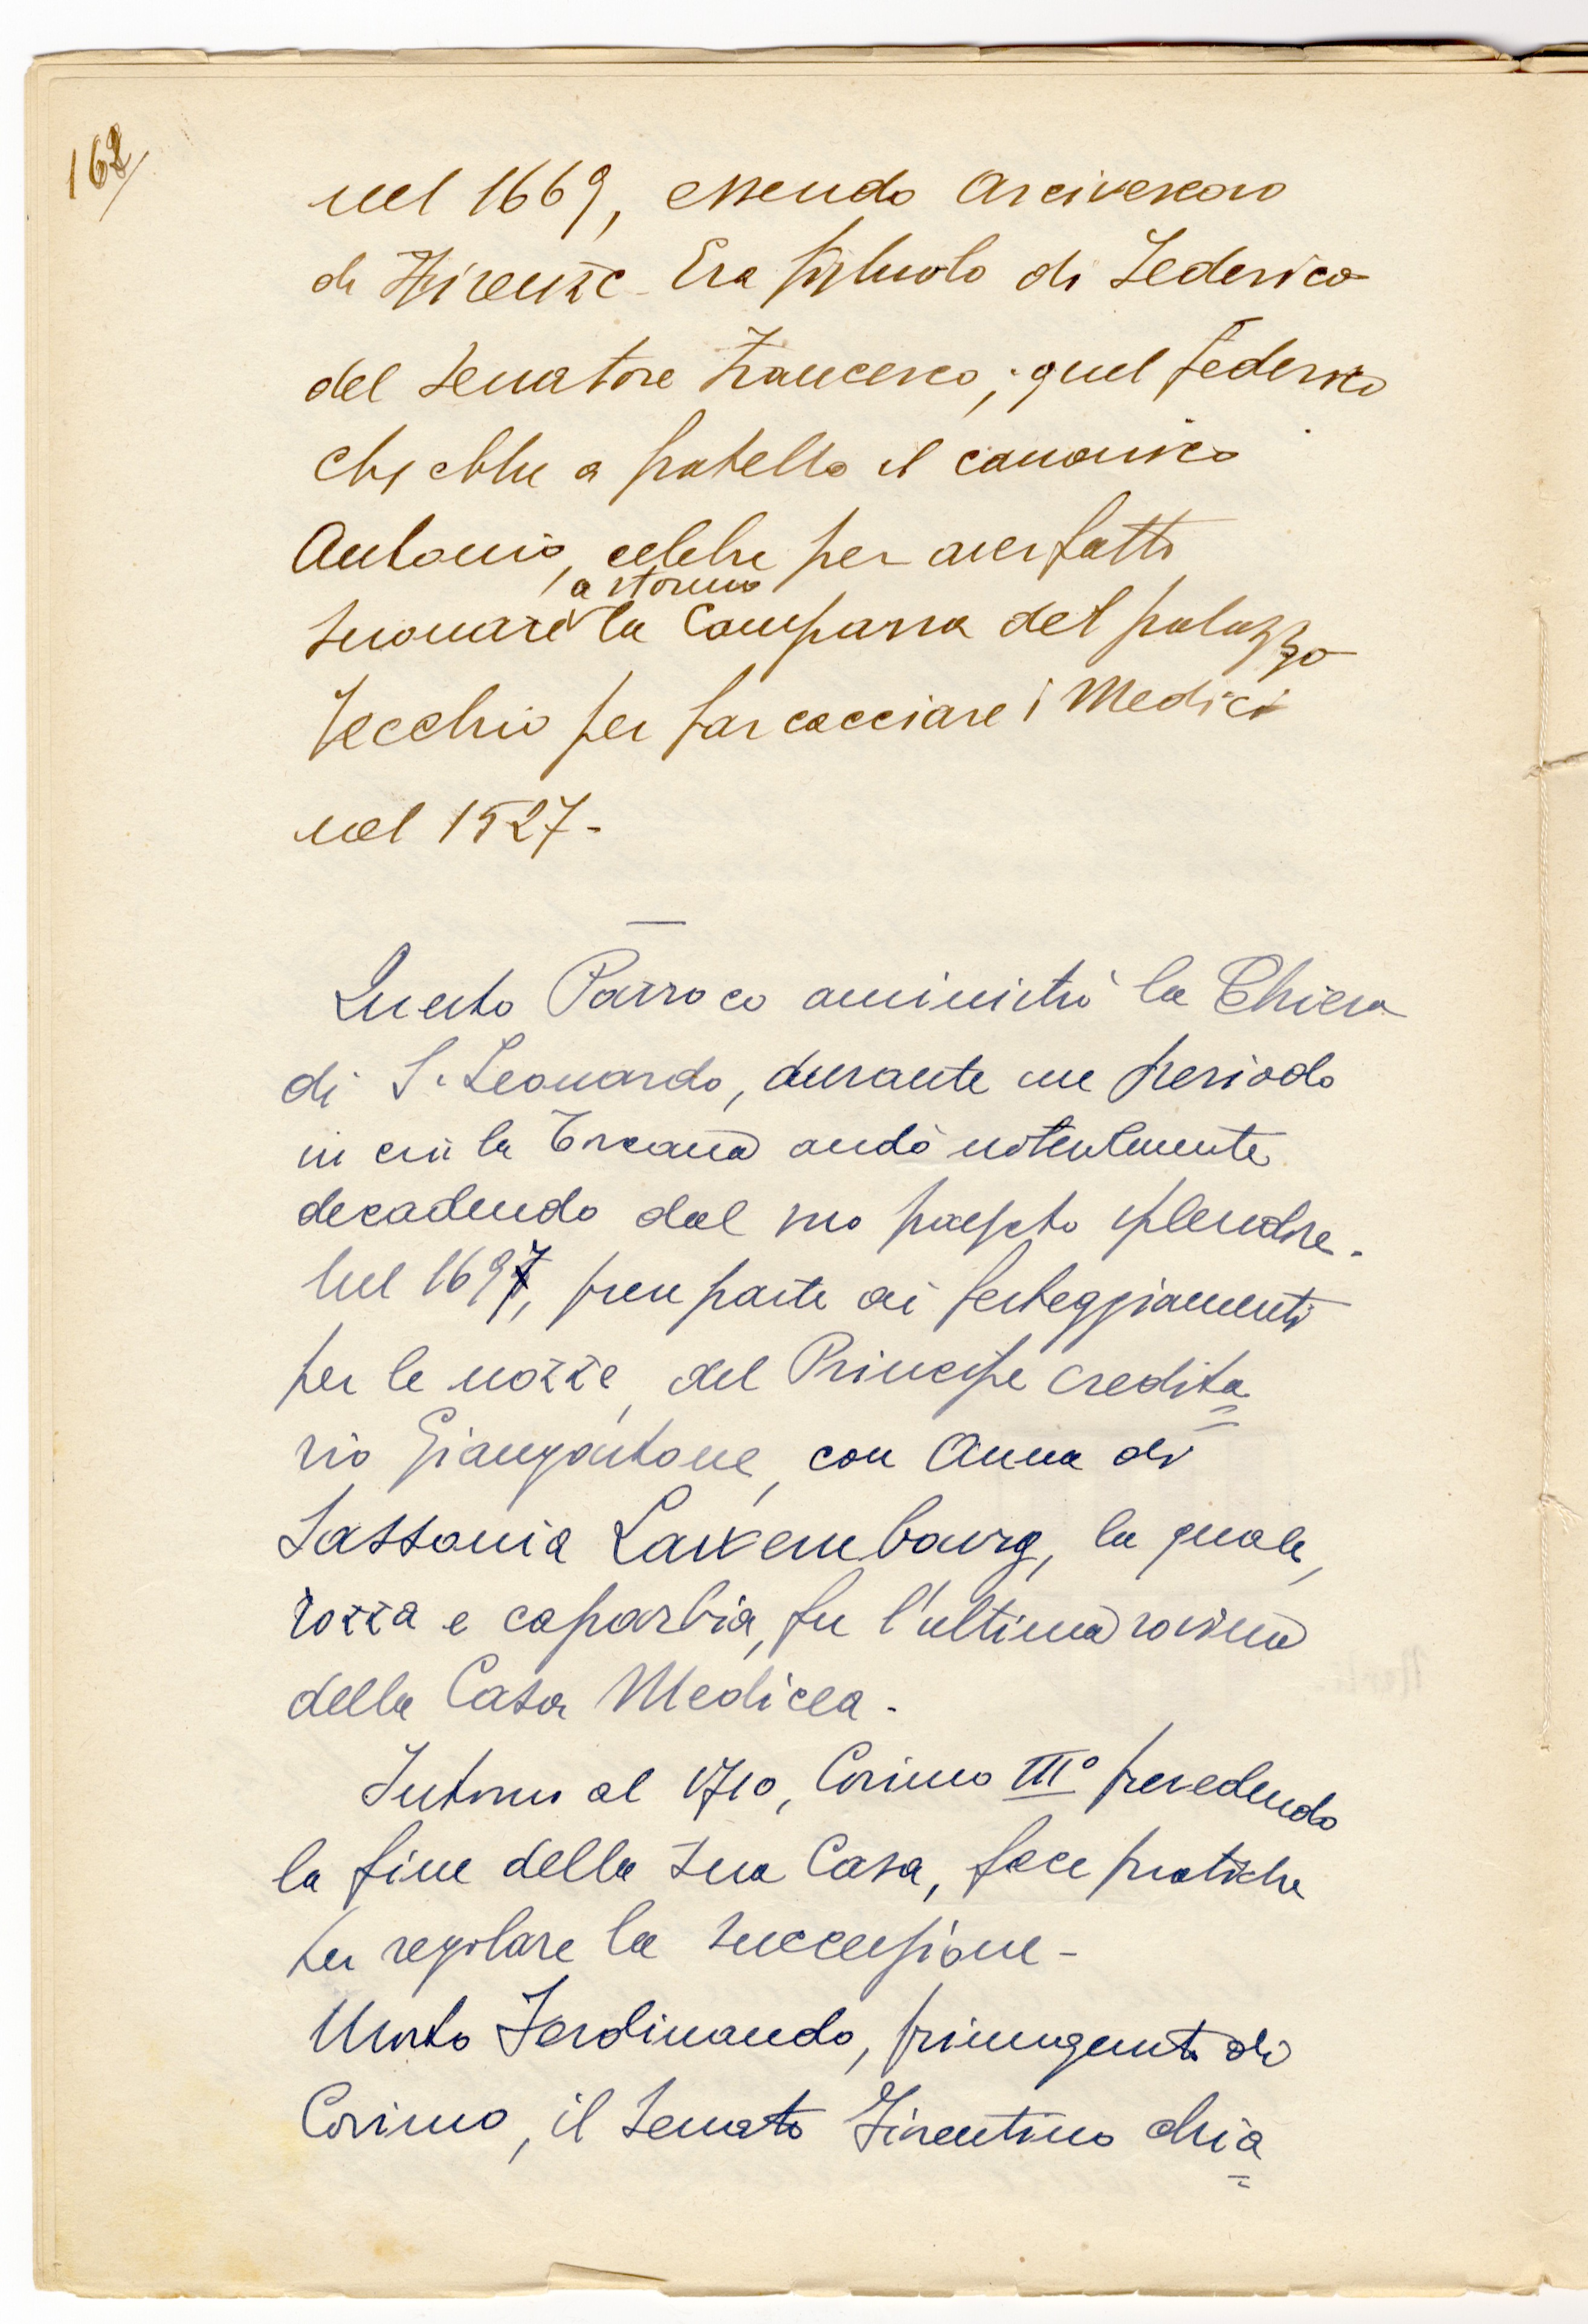 162/
nel 1669, essendo Arcivescovo
di Firenze - Era figluolo di Federico
del Senatore Francesco; quel Federico
che ebbe a fratello il canonico
Antonio, celebre per aver fatto
a stormo
suonare la Campana del palazzo
Vecchio per far cacciare i Medici
nel 1527 -
Questo Parroco aministrò la Chiesa
di S. Leonardo, durante un periodo
in cui la Toscana andò notevolmente
decadendo dal suo passato splendore.
Nel 1697, prese parte ai festeggiamenti
per le nozze, del Principe eredita=
rio Giangastone, con Anna di
Sassonia Lauxembourg, la quale,
rozza e caparbia, fu l'ultima rovina
della Casa Medicea -
Intorno al 1710, Cosimo III° prevedendo
la fine della sua Casa, fece pratiche
per regolare la successione -
Morto Ferdinando, primogenito di
Cosimo, il Senato Fiorentino chia=